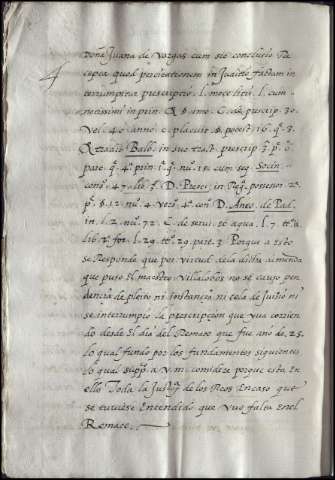 4
Doña Juana de Vargas cum sit conclusio Re
cepta quod per citationem in Juditio factam in
terrumpitur prescriptio. l. mora litis. l. cum
notissimi in prin. & §. imo. C. de prescrip. 30.
vel. 40. anno. c. placuit §. potest. 16. q. 3.
tradit Balb. in suo tract. prescrip. 3. p.
parte. 4. prin. q. nu. 1. cum seq. Socin.
cons. 47. lib. D. Perez. in Reg. possessor. 2.
p. §. 12. nu. 4. con D. Anto. de Pad.
in. l. 2. nu. 72. C. de servi. et aqua. l. 7. tt.
lib. 2. for. l. 29. tt. 29. part. 3. Porque a esto
se Responde que por virtud de la dicha demanda
que puso el maestro villalobos no se causo pen
dencia de pleito ni instancia ni cela de Juizio ni
se interrumpio la prescripcion que yva corrien
do desde el dia del Remate que fue año de. 25.
lo qual fundo por los fundamentos siguientes
lo qual supp.co a v. m. considere porque esta en
ello Toda la Just.a de los Reos En caso que
se tuviese Entendido que vuo falta en el
Remate.